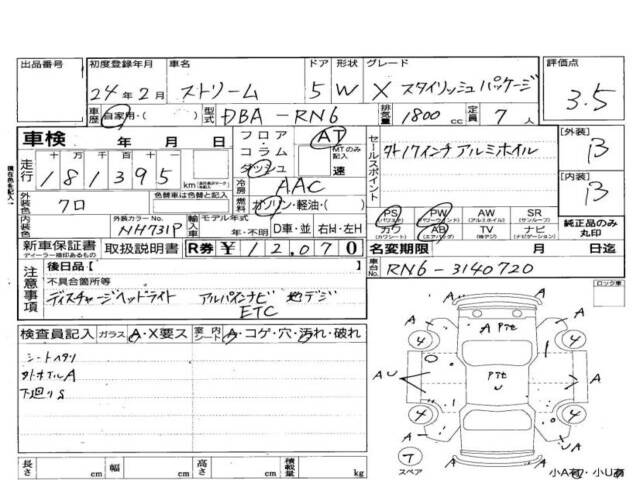 出品番号 初度登録年月 車名 ドア 形状 グレード 評価点
24年2月 ストリーム 5 W X スタイリッシュパッケージ 3.5
車歴 自家用・( ) 型式 DBA-RN6 排気量 1800cc 定員 7人
車検 年 月 日 フロア コラム ダッシュ AT MTのみ記入 速 セールスポイント [外装] B
走行 十 万 千 百 十 一 外17インチアルミホイル
181395 km 冷房 AAC [内装] B
外装色 クロ 色替車は色替と記入 燃料 ガソリン・軽油・( ) PS PW AW SR
カワ AB TV ナビ 純正品のみ丸印
内装色 外装カラーNo. NH731P 輸入車 モデル年式 年・不明 D車・並 右H・左H
新車保証書 取扱説明書 R券 ¥12,070 名変期限 月 日迄
ディーラー捺印あるもの
注意事項 後日品【 】 車台No. RN6-3140720
不具合箇所等 ロック車
ディスチャージヘッドライト アルパインナビ 地デジ
ETC
検査員記入 ガラス A・X要ス 室内シート A・コゲ・穴・汚れ・破れ
シートヘタリ
外ホイルA
下廻りS
A Pit
A A
4 4
AU Pit U A
4 4
A A
7
スペア
長さ cm 幅 cm 高さ cm 積載量 kg 小A初・小U有